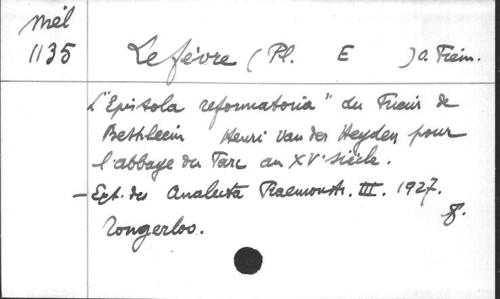 Mél
1135
Lefèvre (Pl. E ) O. Prém.
L'"Epistola reformatoria" du Prieur de
Bethleem Henri van der Heyden pour
l'abbaye du Parc au XVe siècle.
— Ext. des Analecta Praemonstr. III. 1927.
Tongerloo.